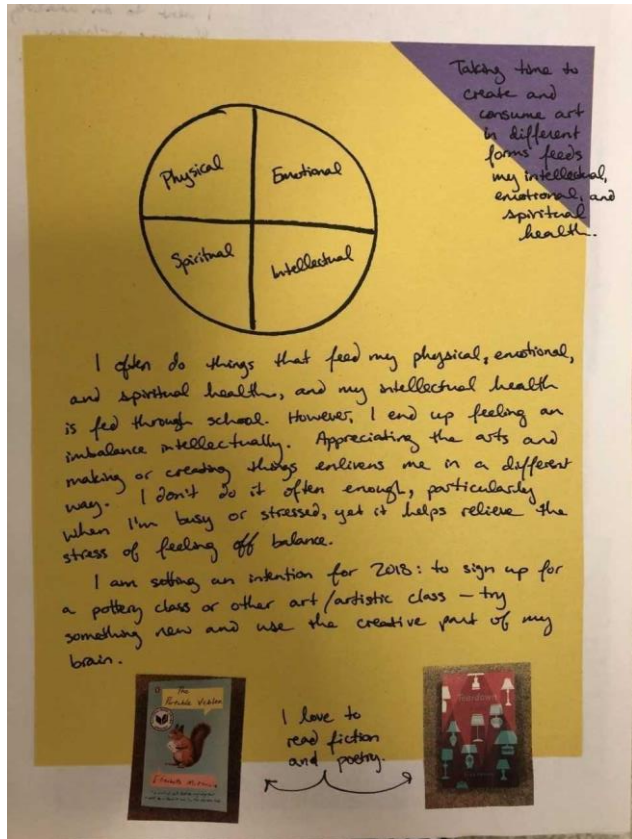 Taking time to
create and
consume art
in different
forms feeds
my intellectual,
emotional, and
spiritual
health.
Physical
Emotional
Spiritual
Intellectual
I often do things that feed my physical, emotional,
and spiritual health, and my intellectual health
is fed through school. However, I end up feeling an
imbalance intellectually. Appreciating the arts and
making or creating things enlivens me in a different
way. I don't do it often enough, particularly
when I'm busy or stressed, yet it helps relieve the
stress of feeling off balance.
I am setting an intention for 2018: to sign up for
a pottery class or other art/artistic class – try
something new and use the creative part of my
brain.
The
Portable Veblen
Elizabeth
I love to
read fiction
and poetry.
Teardown